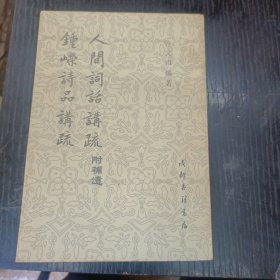 人間詞話講疏 附補遺
鍾嶸詩品講疏
編著
成都古籍書店